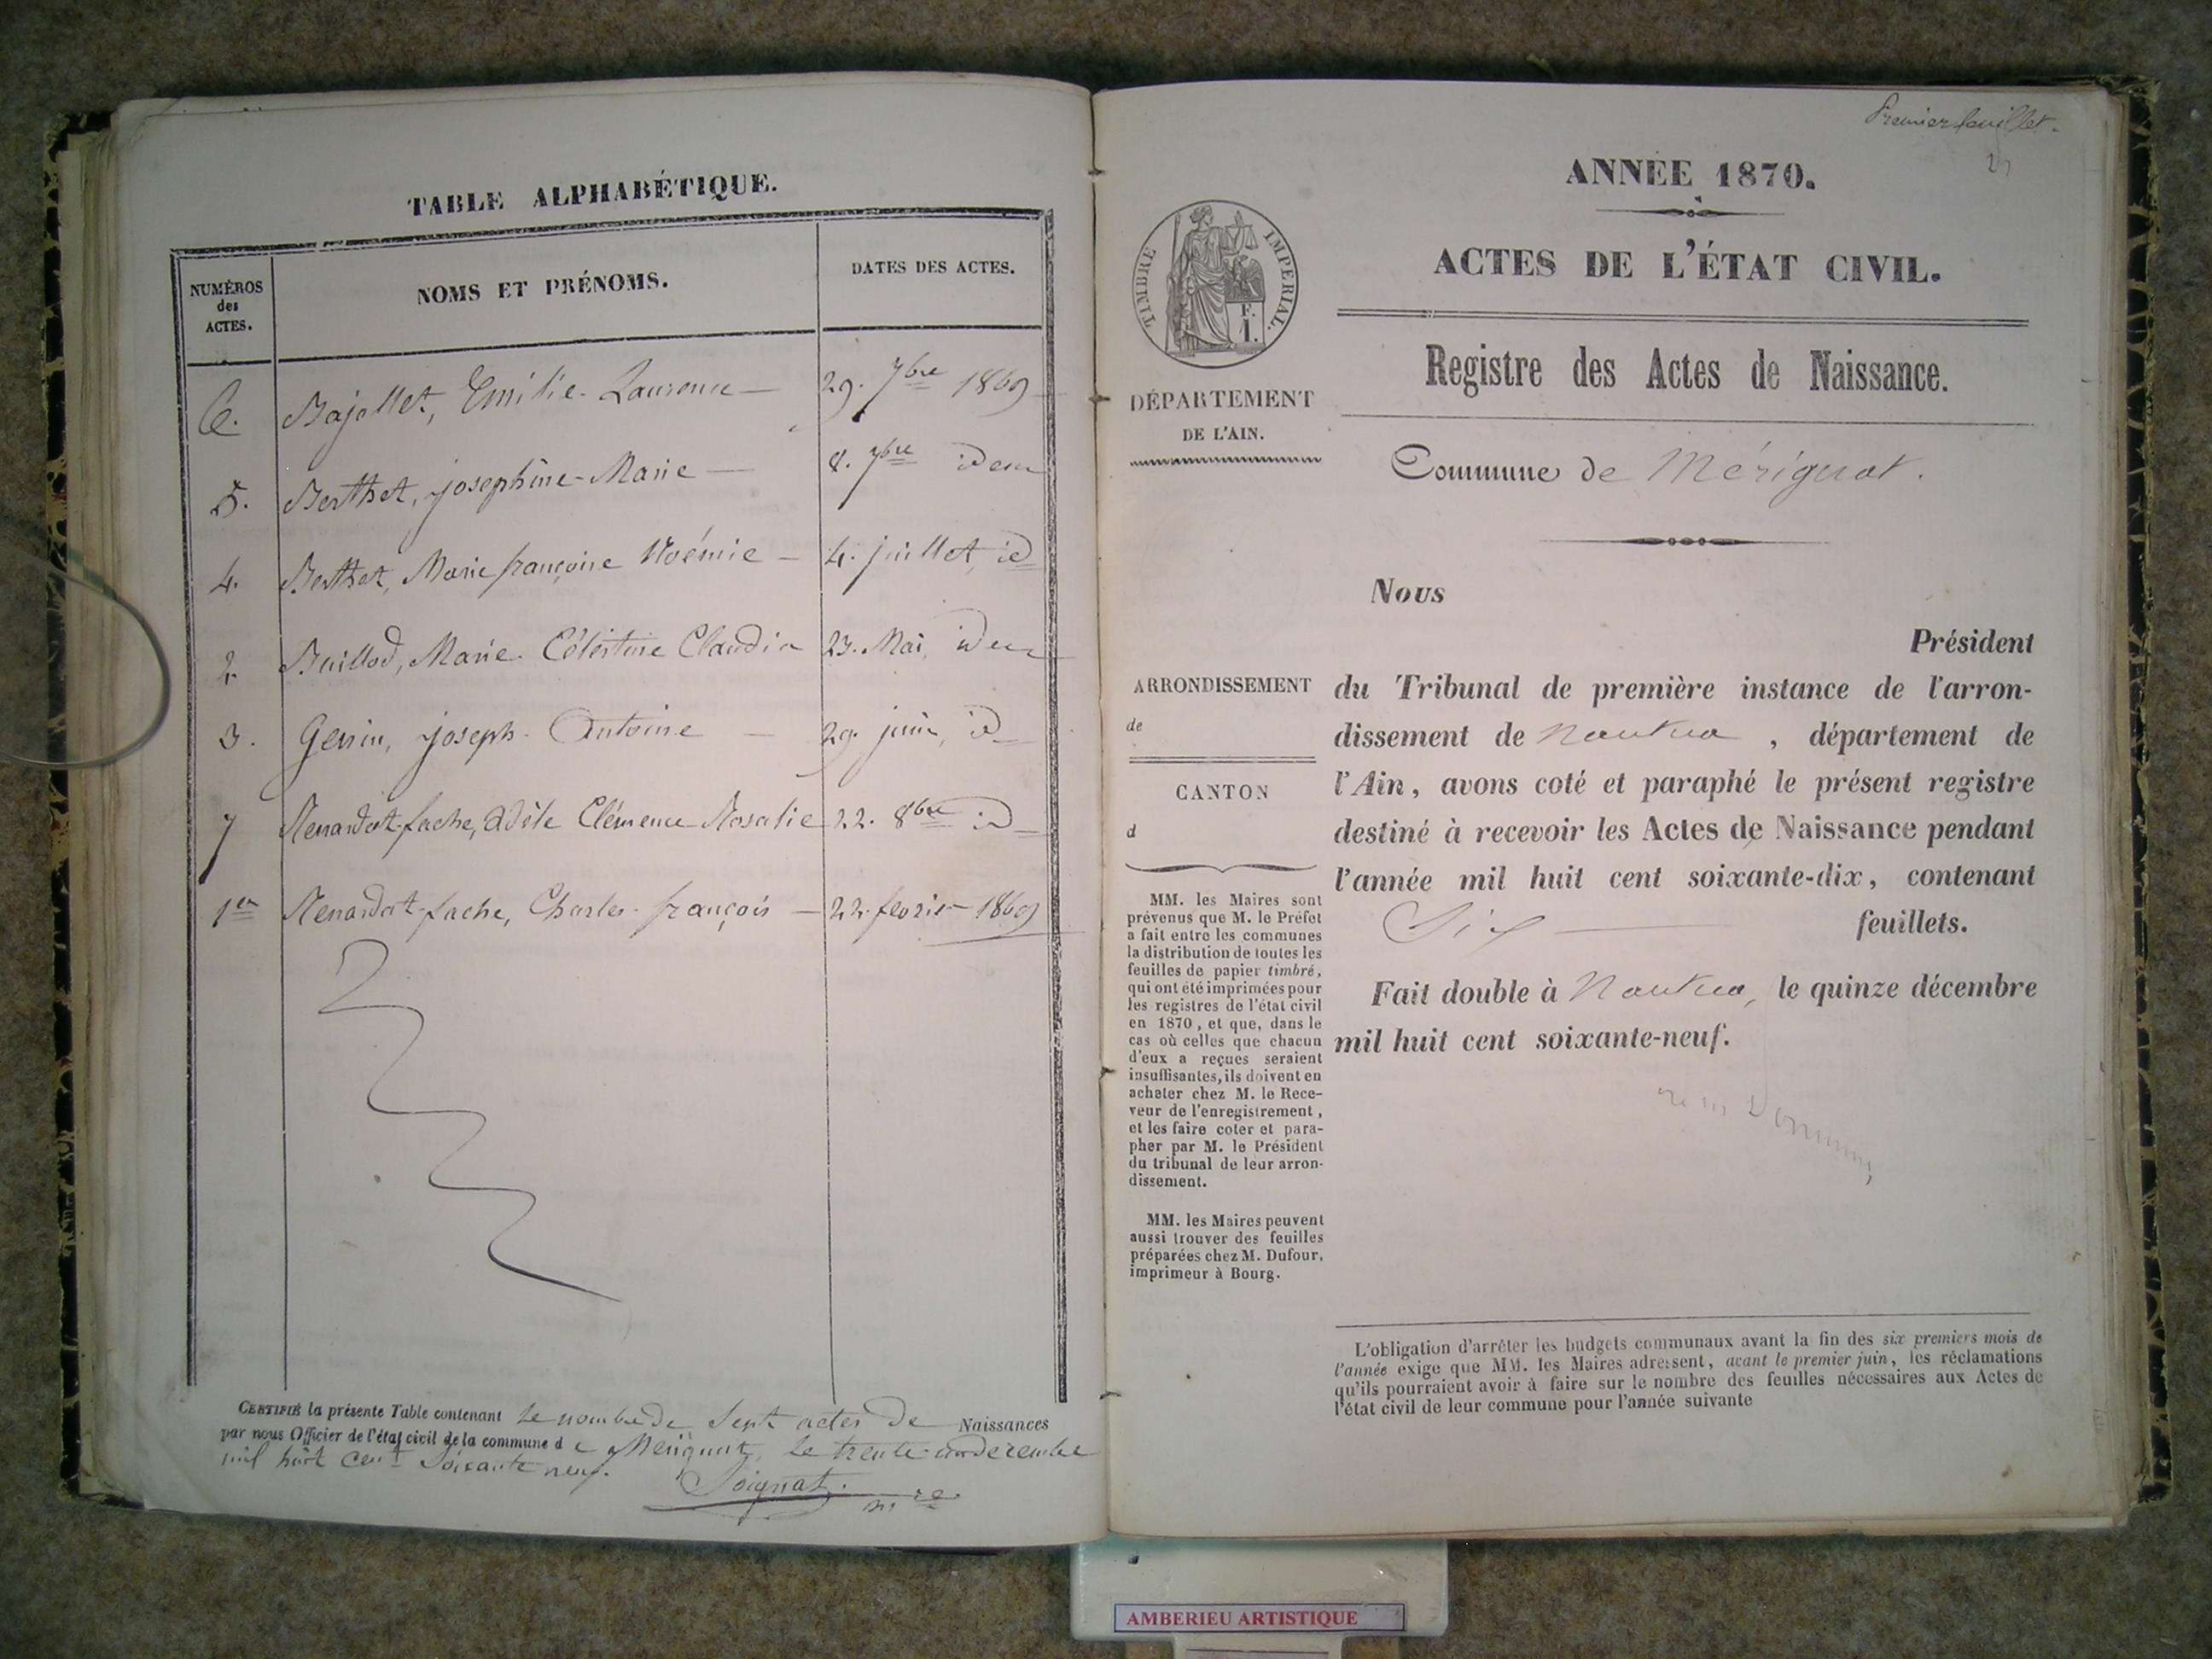 TABLE ALPHABÉTIQUE.
NUMÉROS
des
ACTES.
NOMS ET PRÉNOMS.
DATES DES ACTES.
6. Bajollet, Emilie-Laurence 29. 7bre 1869
5. Berthet, josephine-Marie 8. 7bre idem
4. Berthet, Marie françoise Noémie 4. juillet id
2. Buillod, Marie Célestine Claudia 23. Mai, idem
3. Genin, joseph-Antoine 29. juin, id
7 Renardat-fache, Adèle Clémence Rosalie 22. 8bre id
1er Renardat-fache, Charles-françois 22. fevrier 1869
CERTIFIÉ la présente Table contenant le nombre de Sept actes de Naissances
par nous Officier de l'état civil de la commune de Mérignat, le trente un décembre
mil huit cent Soixante neuf.
Soignat.
mre
Premier feuillet.
ANNÉE 1870.
ACTES DE L'ÉTAT CIVIL.
TIMBRE IMPERIAL.
F.
1.
DÉPARTEMENT
DE L'AIN.
Registre des Actes de Naissance.
Commune de Mérignat.
Nous
Président
du Tribunal de première instance de l'arron-
dissement de Nantua, département de
l'Ain, avons coté et paraphé le présent registre
destiné à recevoir les Actes de Naissance pendant
l'année mil huit cent soixante-dix, contenant
Six feuillets.
Fait double à Nantua, le quinze décembre
mil huit cent soixante-neuf.
ARRONDISSEMENT
de
CANTON
d
MM. les Maires sont
prévenus que M. le Préfet
a fait entre les communes
la distribution de toutes les
feuilles de papier timbré,
qui ont été imprimées pour
les registres de l'état civil
en 1870, et que, dans le
cas où celles que chacun
d'eux a reçues seraient
insuffisantes, ils doivent en
acheter chez M. le Rece-
veur de l'enregistrement,
et les faire coter et para-
pher par M. le Président
du tribunal de leur arron-
dissement.
MM. les Maires peuvent
aussi trouver des feuilles
préparées chez M. Dufour,
imprimeur à Bourg.
L'obligation d'arrêter les budgets communaux avant la fin des six premiers mois de
l'année exige que MM. les Maires adressent, avant le premier juin, les réclamations
qu'ils pourraient avoir à faire sur le nombre des feuilles nécessaires aux Actes de
l'état civil de leur commune pour l'année suivante
AMBERIEU ARTISTIQUE